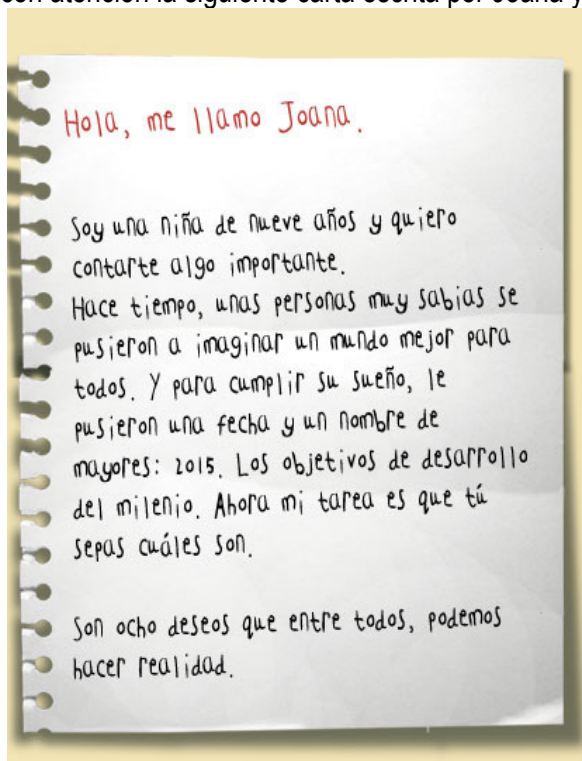 con atención la siguiente carta escrita por Joana y
Hola, me llamo Joana.
Soy una niña de nueve años y quiero
contarte algo importante.
Hace tiempo, unas personas muy sabias se
pusieron a imaginar un mundo mejor para
todos. Y para cumplir su sueño, le
pusieron una fecha y un nombre de
mayores: 2015. Los objetivos de desarrollo
del milenio. Ahora mi tarea es que tú
sepas cuáles son.
Son ocho deseos que entre todos, podemos
hacer realidad.